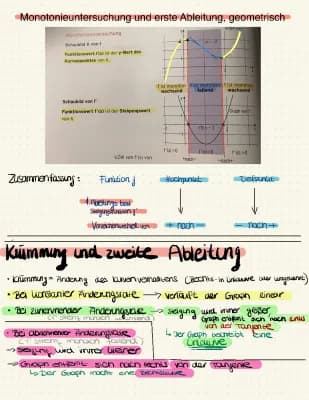 Monotonieuntersuchung und erste Ableitung, geometrisch
Schaubild K von f
Funktionswert f(x) ist der y-Wert des
Kurvenpunktes von K.
f ist monoton
wachsend
f ist monoton
fallend
f ist monoton
wachsend
Schaubild von f'
Zusammenfassung:
Funktion f
Hochpunkt
Tiefpunkt
1. Ableitung bzw
+ nach -
- nach +
Krümmung und zweite Ableitung
• Krümmung = Änderung des Kurvenverhaltens
• Bei konstanter Änderungsrate → verläuft der Graph linear
• Bei zunehmender Änderungsrate → Steigung wird immer größer
(f' streng monoton wachsend)
Graph entfernt sich nach links
von der Tangente
↳ Der Graph beschreibt eine
Linkskurve
• Bei abnehmender Änderungsrate
(f' streng monoton fallend)
→ Steigung wird immer kleiner
→ Graph entfernt sich nach rechts von der Tangente
↳ Der Graph macht eine Rechtskurve